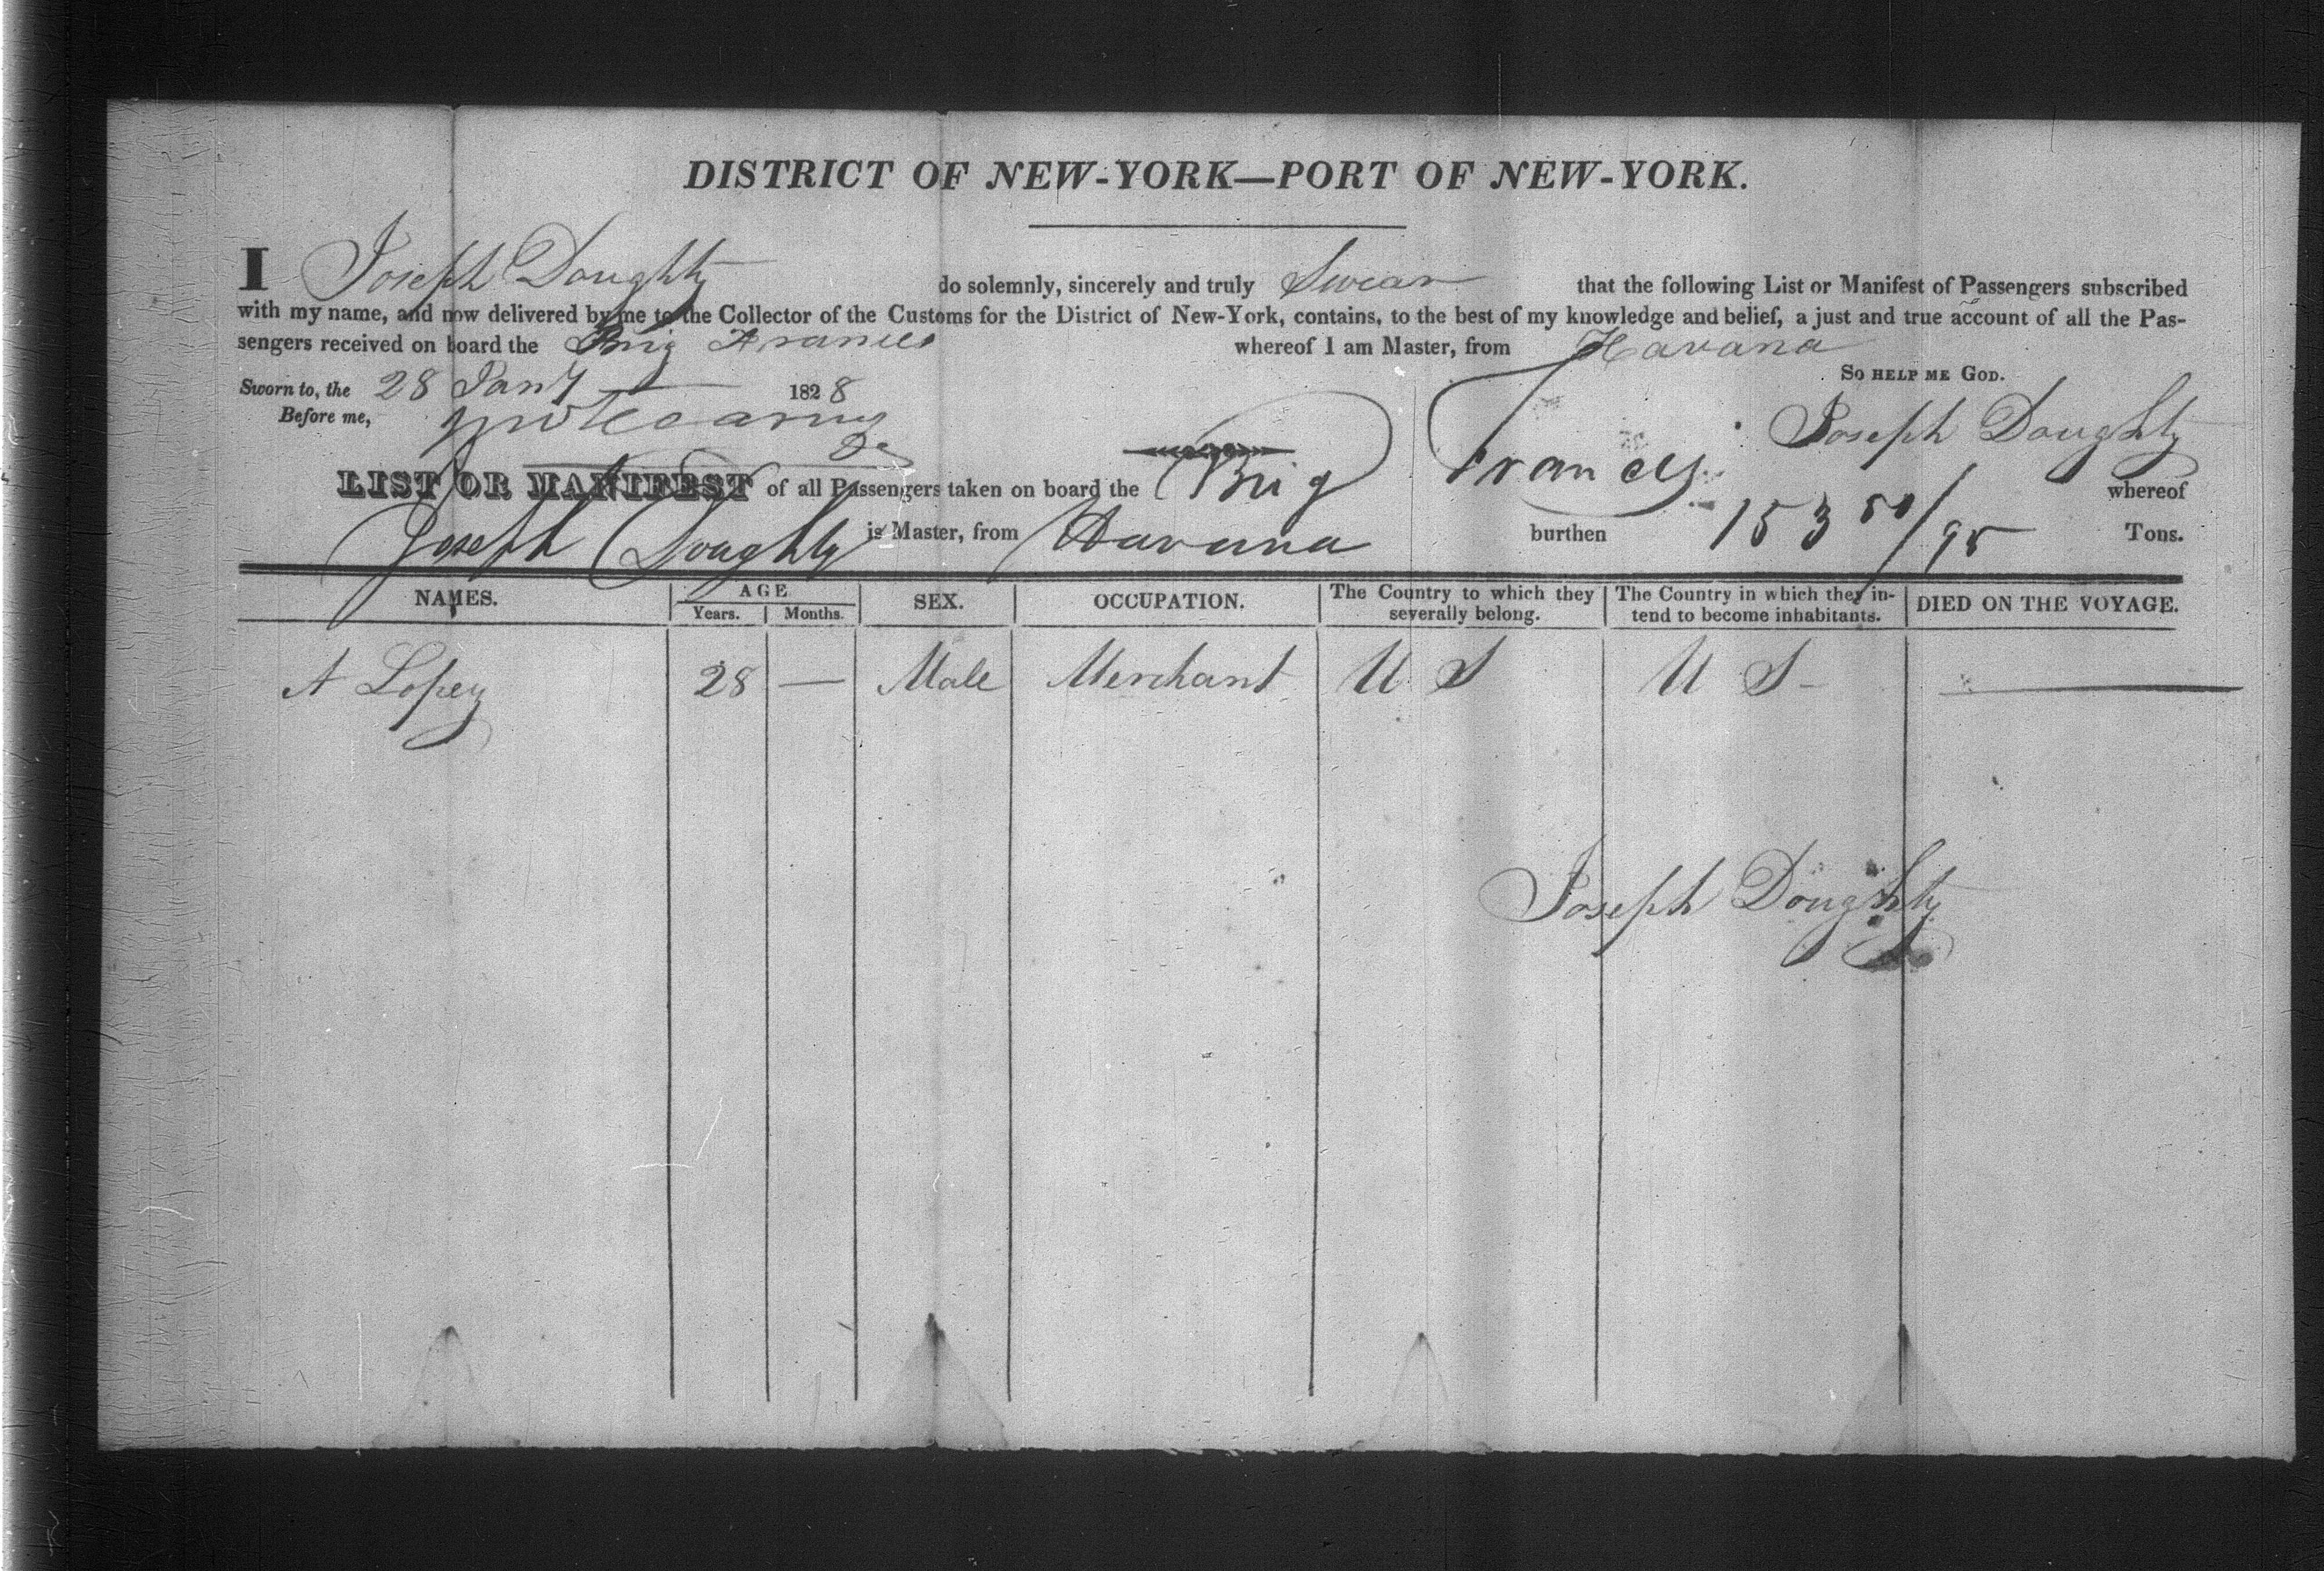 DISTRICT OF NEW-YORK—PORT OF NEW-YORK.
I Joseph Doughty do solemnly, sincerely and truly Swear that the following List or Manifest of Passengers subscribed
with my name, and now delivered by me to the Collector of the Customs for the District of New-York, contains, to the best of my knowledge and belief, a just and true account of all the Pas-
sengers received on board the Brig Frances whereof I am Master, from Havana
So HELP ME GOD.
Sworn to, the 28 Jany 1828
Before me,
Joseph Doughty
LIST OR MANIFEST of all Passengers taken on board the Brig Frances whereof
Joseph Doughty is Master, from Havana burthen 153 50/95 Tons.
NAMES. AGE Years. Months. SEX. OCCUPATION. The Country to which they severally belong. The Country in which they in-tend to become inhabitants. DIED ON THE VOYAGE.
A Lopez 28 — Male Merchant U S U S —
Joseph Doughty